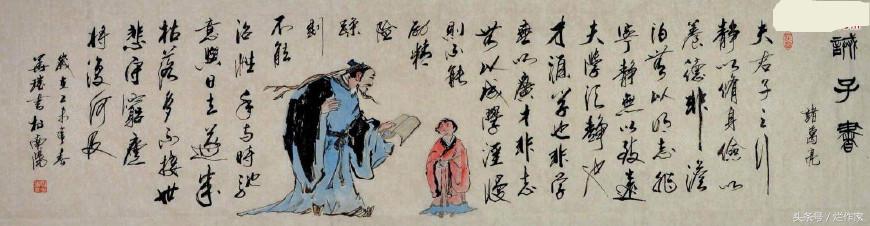 誡子書
諸葛亮
夫君子之行
靜以脩身儉以
養德非澹
泊無以明志非
寧靜無以致遠
夫學須靜也
才須學也非學
無以廣才非志
無以成學淫慢
則不能
勵精
險
躁
則
不能
治性年與時馳
意與日去遂成
枯落多不接世
悲守窮廬
將復何及
歲在乙未年春
書於南陽
头条号 / 烂作家